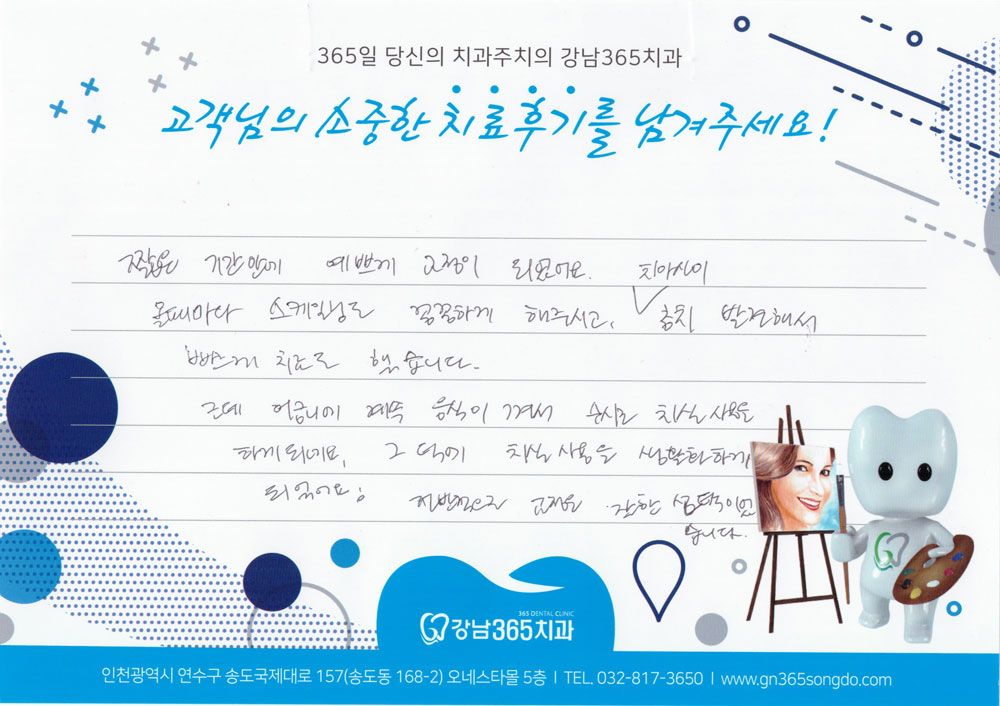 365일 당신의 치과주치의 강남365치과
고객님의 소중한 치료후기를 남겨주세요!
짧은 기간안에 예쁘게 교정이 되었어요. 치아사이
올때마다 스케일링도 꼼꼼하게 해주시고, 충치 발견해서
빠르게 치료도 했습니다.
근데 어금니에 계속 음식이 껴서 수시로 치실 사용을
하게되네요, 그 덕에 치실 사용을 생활화하게
되었어요; 전반적으로 교정은 잘한 선택이었
습니다.
365 DENTAL CLINIC
강남365치과
인천광역시 연수구 송도국제대로 157(송도동 168-2) 오네스타몰 5층 l TEL. 032-817-3650 l www.gn365songdo.com